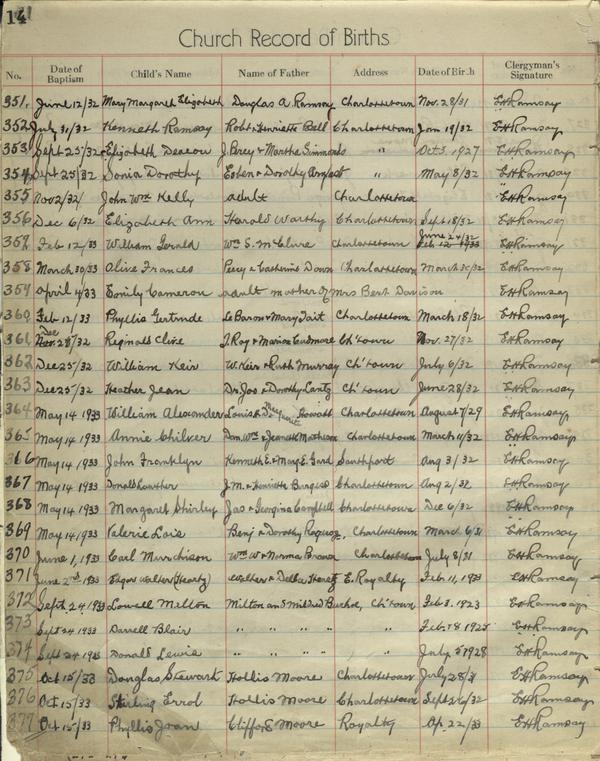 14
Church Record of Births
No. Date of Baptism Child's Name Name of Father Address Date of Birth Clergyman's Signature
351. June 12/32 Mary Margaret Elizabeth Douglas A. Ramsay Charlottetown Nov. 28/31 EHRamsay
352 July 31/32 Kenneth Ramsay Robt & Henrietta Bell Charlottetown Jan 18/32 EHRamsay
353 Sept 25/32 Elizabeth Deacon J. Percy & Martha Simmonds " Oct 3 1927 EHRamsay
354 Sept 25/32 Sonia Dorothy & Dorothy " May 8/32 EHRamsay
355 Nov 2/32 John Wm Kelly adult Charlottetown EHRamsay
356 Dec 6/32 Elizabeth Ann Harold Worthy Charlottetown Sept 18/32 EHRamsay
June 24/32
357 Feb 12/33 William Gerald Wm S. McClure Charlottetown Feb 12 1933 EHRamsay
358 March 30/33 Olive Frances Percy & Catherine Down Charlottetown March 30/32 EHRamsay
359 April 4/33 Emily Cameron adult mother of Mrs Bert Davison EHRamsay
360 Feb 12/33 Phyllis Gertrude LeBaron & Mary Tait Charlottetown March 18/32 EHRamsay
Dec
361 Nov. 28/32 Reginald Clive J. Roy & Marion Cudmore Ch'town Nov. 27/32 EHRamsay
362 Dec 25/32 William Keir W. Keir & Ruth Murray Ch'town July 6/32 EHRamsay
363 Dec 25/32 Heather Jean Dr. Jos & Dorothy Lantz Ch'town June 28/32 EHRamsay
364 May 14 1933 William Alexander Louis & Howatt Charlottetown August 7/29 EHRamsay
365 May 14 1933 Annie Chilver Don. Wm & Jeanette Matheson Charlottetown March 11/32 EHRamsay
366 May 14 1933 John Franklyn Kenneth E. & Mary E. Gard Southport Aug 3/32 EHRamsay
367 May 14 1933 Donald Lowther J.M. & Henrietta Burgess Charlottetown Aug 2/32 EHRamsay
368 May 14 1933 Margaret Shirley Jas & Georgina Campbell Charlottetown Dec 6/32 EHRamsay
369 May 14/1933 Valerie Lois Benj & Dorothy Charlottetown March 6/31 EHRamsay
370 June 1, 1933 Carl Murchison Wm W & Norma Brown Charlottetown July 8/31 EHRamsay
371 June 2nd 1933 Edgar Walter (Heartz) Walter & Della Heartz E. Royalty Feb. 11, 1933 EHRamsay
372 Sept. 24 1933 Lowell Milton Milton and Mildred Ch'town Feb 3. 1923 EHRamsay
373 Sept 24 1933 Darrell Blair " " " " " Feb. 18 1925 EHRamsay
374 Sept 24 1933 Donald Lewis " " " " " July 5 1928 EHRamsay
375 Oct 15/33 Douglas Stewart Hollis Moore Charlottetown July 28/31 EHRamsay
376 Oct 15/33 Stirling Errol Hollis Moore Charlottetown Sept 26/32 EHRamsay
377 Oct 15/33 Phyllis Joan Clifford Moore Royalty Ap. 22/33 EHRamsay